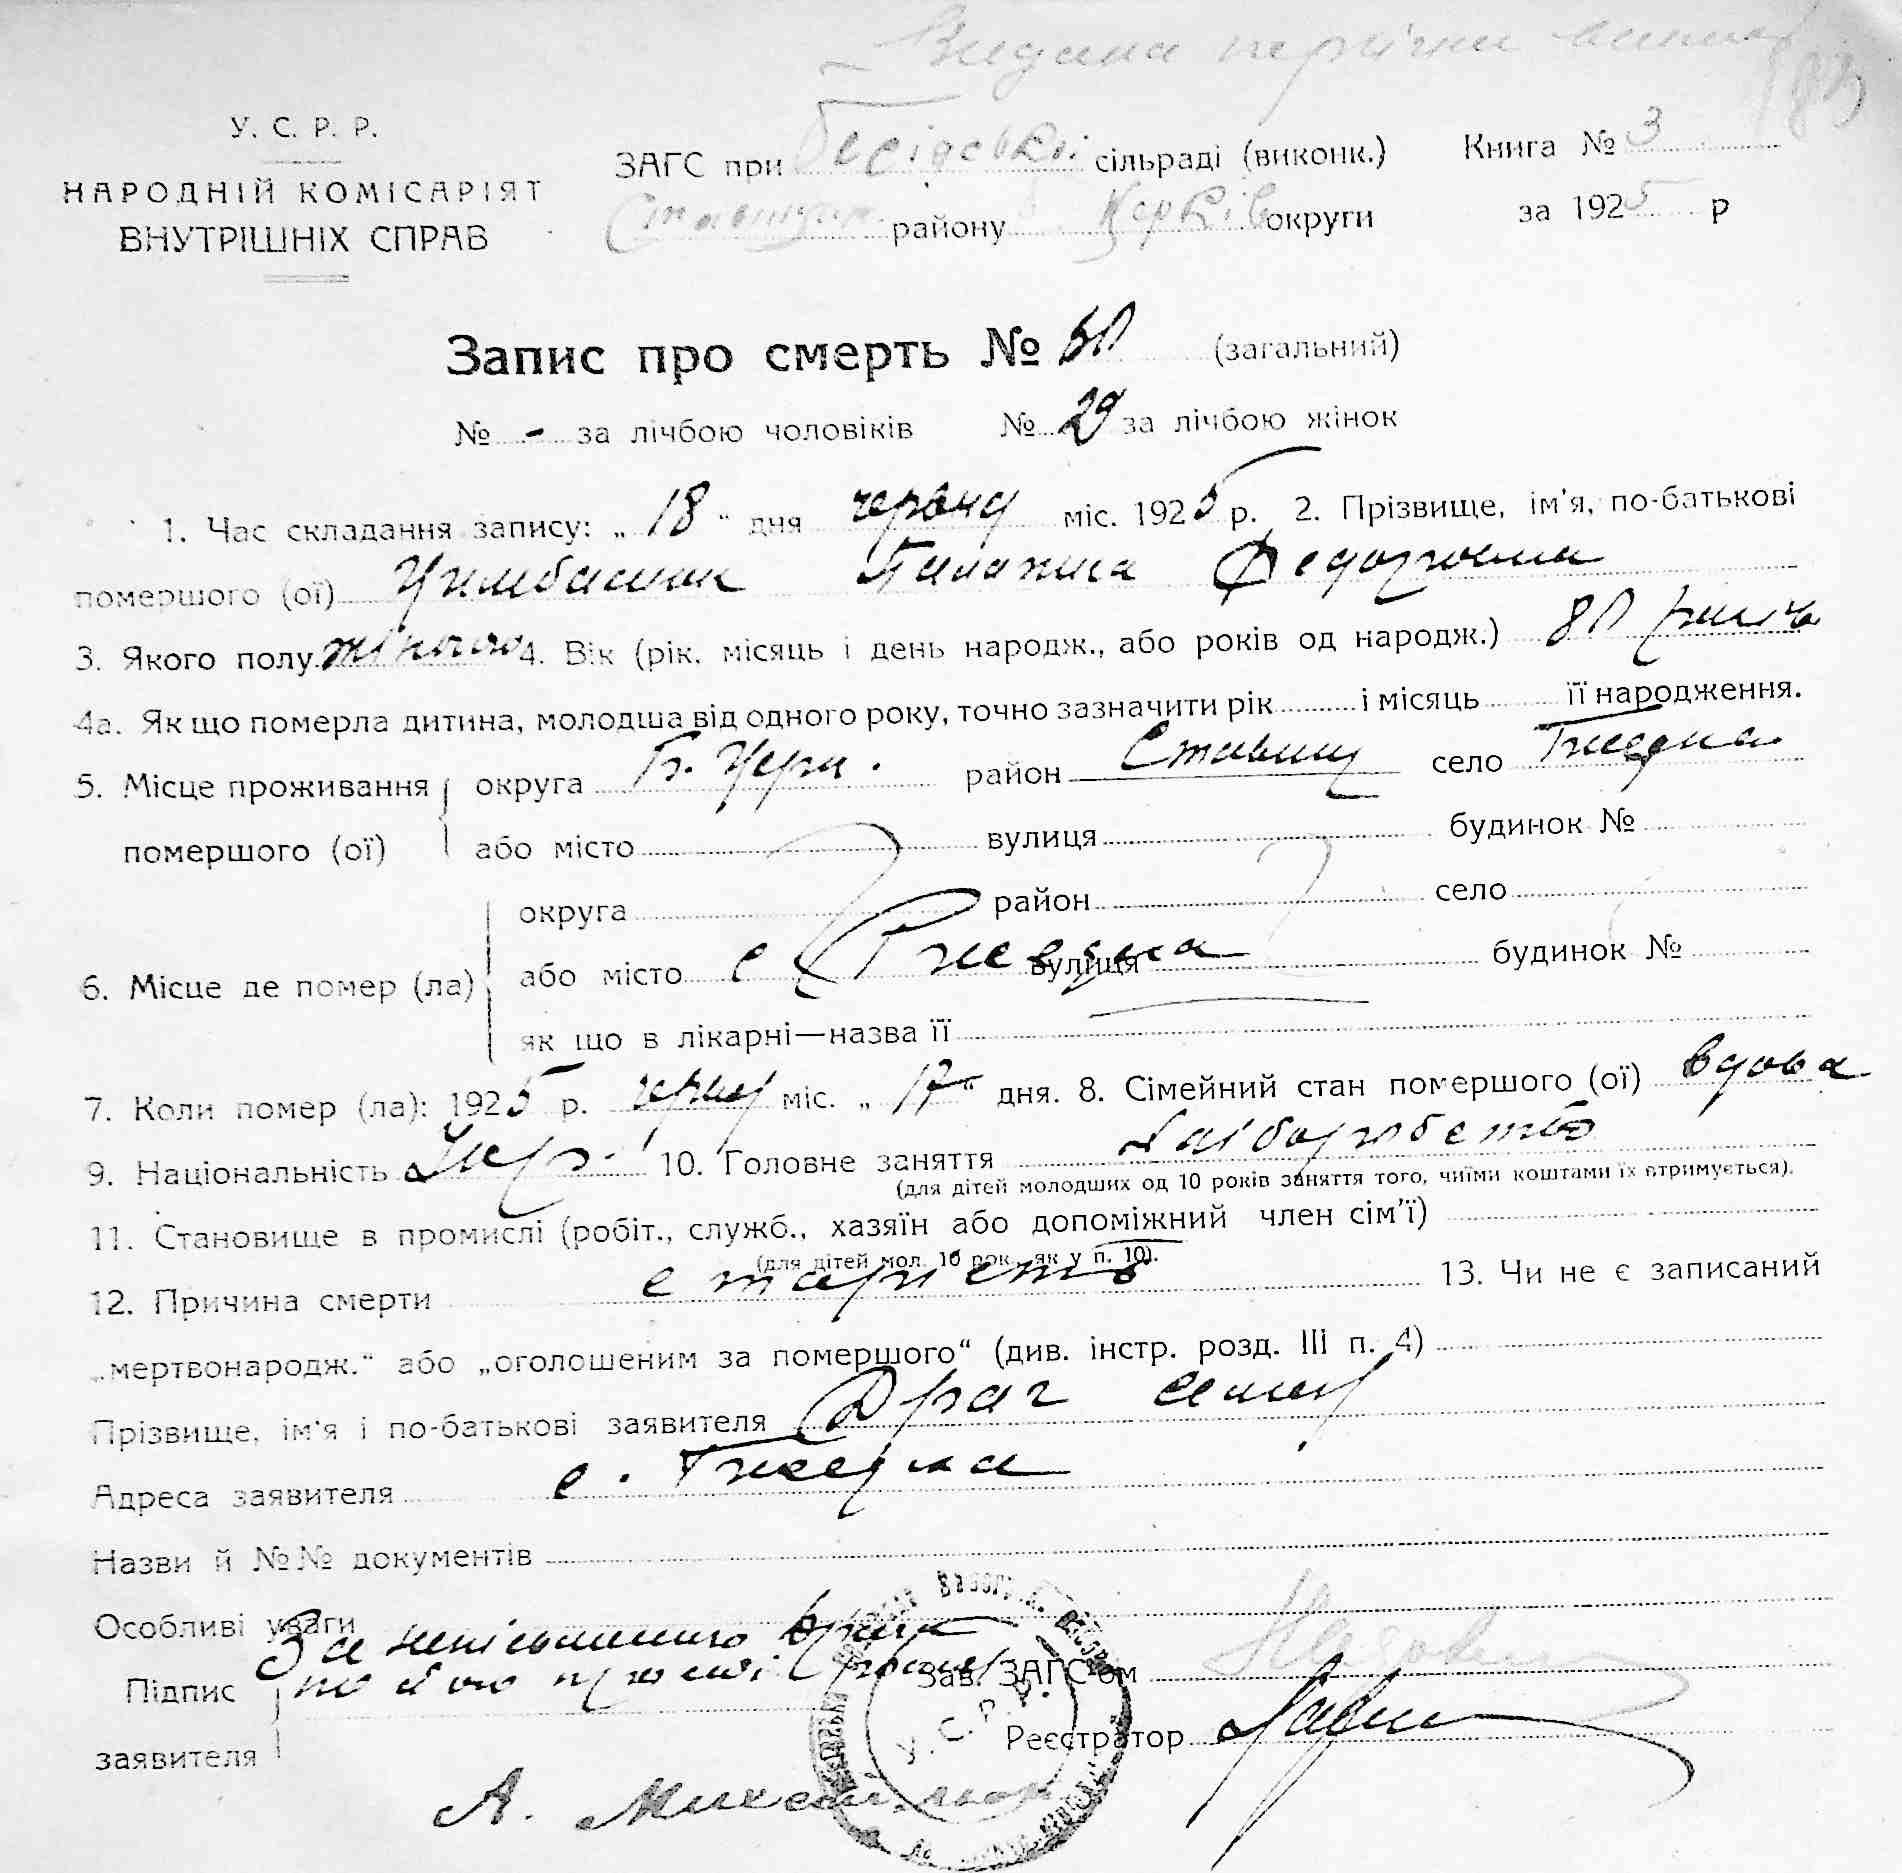 Видана
У. С. Р. Р.
НАРОДНІЙ КОМІСАРІЯТ
ВНУТРІШНІХ СПРАВ
ЗАГС при Бесідській сільраді (виконк.) Книга № 3
району округи за 1925 р
Запис про смерть № 50 (загальний)
№ - за лічбою чоловіків № 29 за лічбою жінок
1. Час складання запису: „ 18 “ дня червня міс. 1925 р. 2. Прізвище, ім'я, по-батькові
помершого (ої) Цимбалюк Палажка Федоровна
3. Якого полу жіночого 4. Вік (рік, місяць і день народж., або років од народж.) 80 років
4а. Як що померла дитина, молодша від одного року, точно зазначити рік і місяць її народження.
5. Місце проживання помершого (ої) округа Б. Церк. район Ставищ село Гнедна
або місто вулиця будинок №
6. Місце де помер (ла) округа район село
або місто с вулиця будинок №
як що в лікарні—назва її
7. Коли помер (ла): 1925 р. червн міс. „ 17 “ дня. 8. Сімейний стан помершого (ої) вдова
9. Національність Укр. 10. Головне заняття хліборобство
(для дітей молодших од 10 років заняття того, чиїми коштами їх втримується).
11. Становище в промислі (робіт., служб., хазяїн або допоміжний член сім'ї)
(для дітей мол. 10 рок. як у п. 10).
12. Причина смерти старість 13. Чи не є записаний
„мертвонародж.“ або „оголошеним за помершого“ (див. інстр. розд. III п. 4)
Прізвище, ім'я і по-батькові заявителя Драч
Адреса заявителя с. Гнедна
Назви й №№ документів
Особливі уваги
За неписьменного Драча
Підпис заявителя по його просьбі Зав. ЗАГС'ом
У. С. Р. Р.
Реєстратор
А.